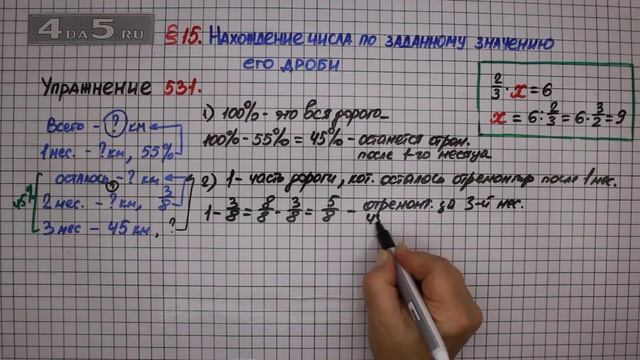 4DA5.RU
§15. Нахождение числа по заданному значению
его дроби
Упражнение 531.
Всего - ? км
1 мес. - ? км, 55%
осталось - ? км
2 мес. - ? км, 3/8
3 мес - 45 км, ?
1) 100% - это вся дорога
100% - 55% = 45% - останется отрем.
после 1-го месяца
2) 1 - часть дороги, кот. осталось отремонтир после 1 мес.
1 - 3/8 = 8/8 - 3/8 = 5/8 - отремонт. за 3-й мес.
2/3 · x = 6
x = 6 : 2/3 = 6 · 3/2 = 9